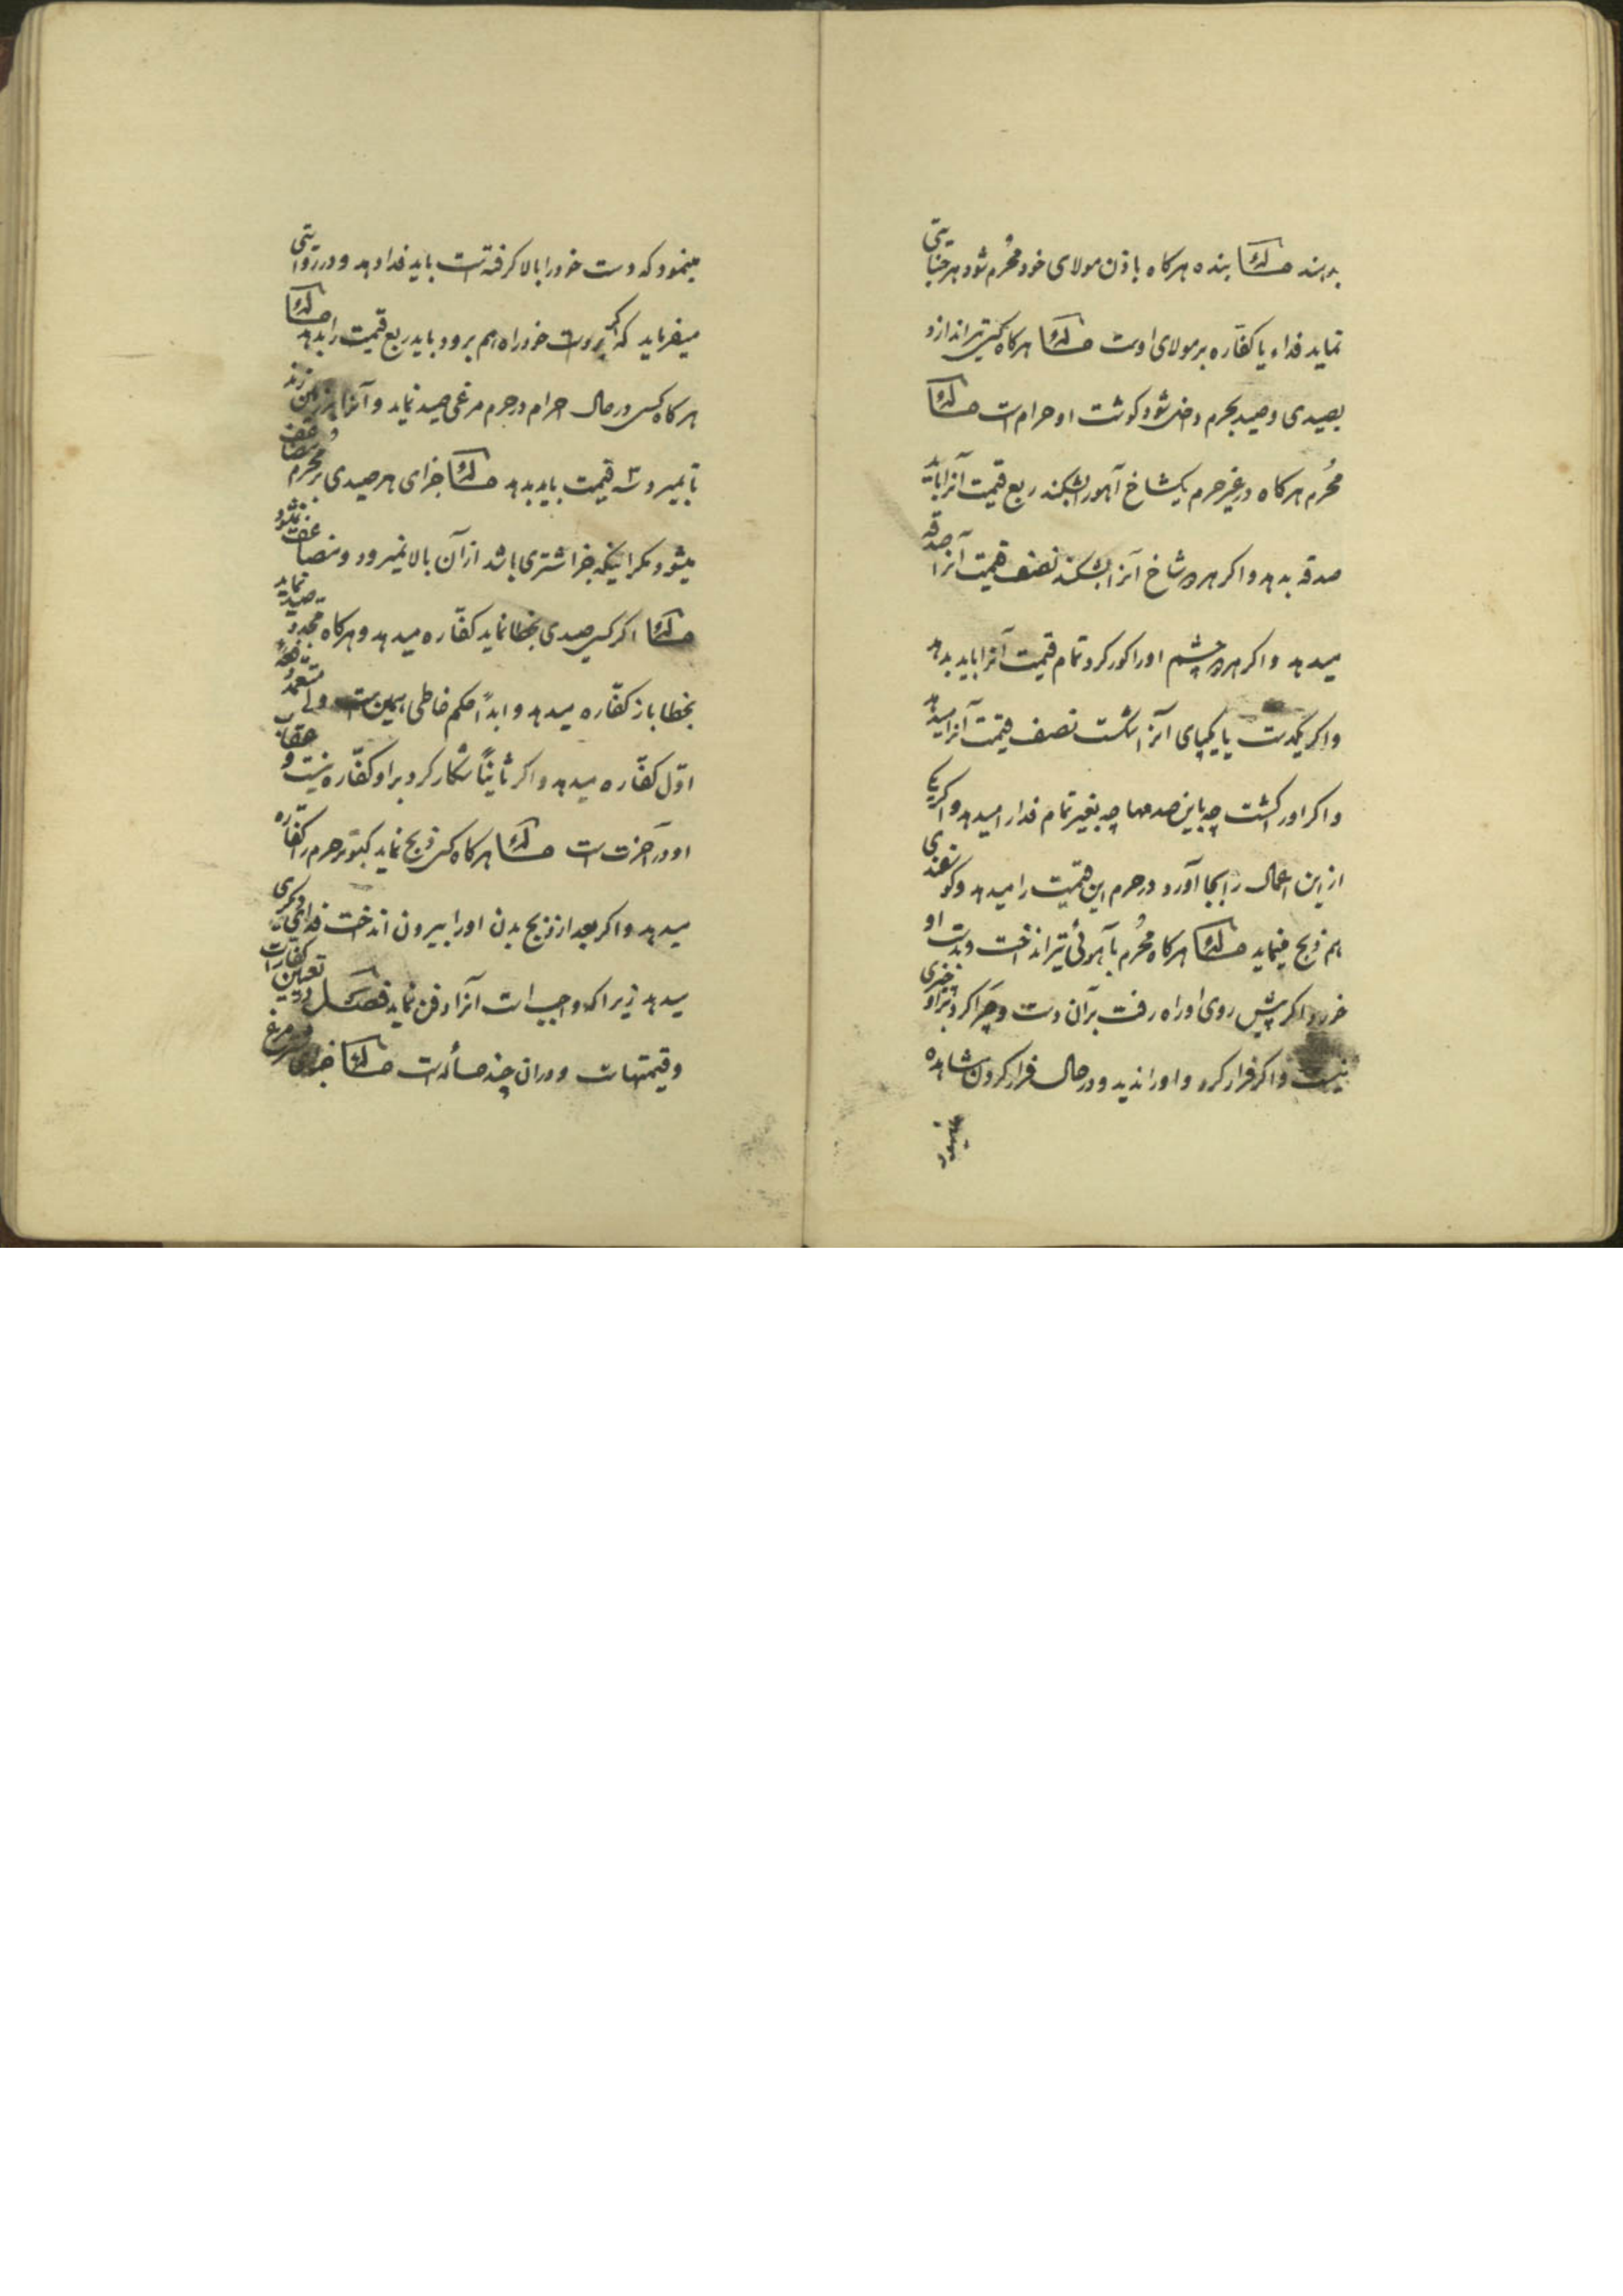 بدهند مسئله بنده هرکاه باذن مولای خود مُحرم شود هر جنایتی
نماید فداء یا کفّاره بر مولای اوست مسئله هرکاه کسی تیر اندازد
بصیدی و صید بحرم داخل شود کوشت او حرام است مسئله
مُحرم هرکاه در غیر حرم یکشاخ آهو را بشکند ربع قیمت آنرا باید
صدقه بدهد و اکر هر دو شاخ آنرا بشکند نصف قیمت آنرا صدقه
میدهد و اکر هر دو چشم او را کور کرد تمام قیمت آنرا باید بدهد
و اکر یکدست یا یکپای آنرا شکست نصف قیمت آنرا میدهد
و اکر او را کشت چه باین صدمها چه بغیر تمام فدا را میدهد و اکر یکی
از این اعمال را بجا آورد در حرم این قیمت را میدهد و کوسفندی
هم ذبح مینماید مسئله هرکاه مُحرم بآهوئی تیر انداخت و بدست او
خورد اکر پیش روی او راه رفت بر آن دست و چرا کرد بر او چیزی
نیست و اکر فرار کرد و او را ندید و در حال فرار کردن مشاهده
مینمود که دست خود را بالا کرفته است باید فدا دهد و در روایتی
میفرماید که اکر بر دست خود راه هم برود باید ربع قیمت را بدهد مسئله
هرکاه کسی در حال احرام در حرم مرغی صید نماید و آنرا بر زمین زند
تا بمیرد سه قیمت باید بدهد مسئله جزای هر صیدی بر مُحرم مضاعف
میشود مکر اینکه جزا شتری باشد از آن بالا نمیرود و مضاعف نمیشود
مسئله اکر کسی صیدی بخطا نماید کفّاره میدهد و هرکاه مجدد صید نماید
بخطا باز کفّاره میدهد و ابداً حکم خاطی همین است ولی متعمد دفعهٔ
اوّل کفّاره میدهد و اکر ثانیاً شکار کرد بر او کفّاره نیست و عقاب
او در آخرت است مسئله هرکاه کسی ذبح نماید کبوتر حرم را کفّاره
میدهد و اکر بعد از ذبح بدن او را بیرون انداخت فدای دیکری
میدهد زیرا که واجب است آنرا دفن نماید فصل در تعیین کفارات
و قیمتهاست و در آن چند مسأله است مسئله جزای شتر مرغ